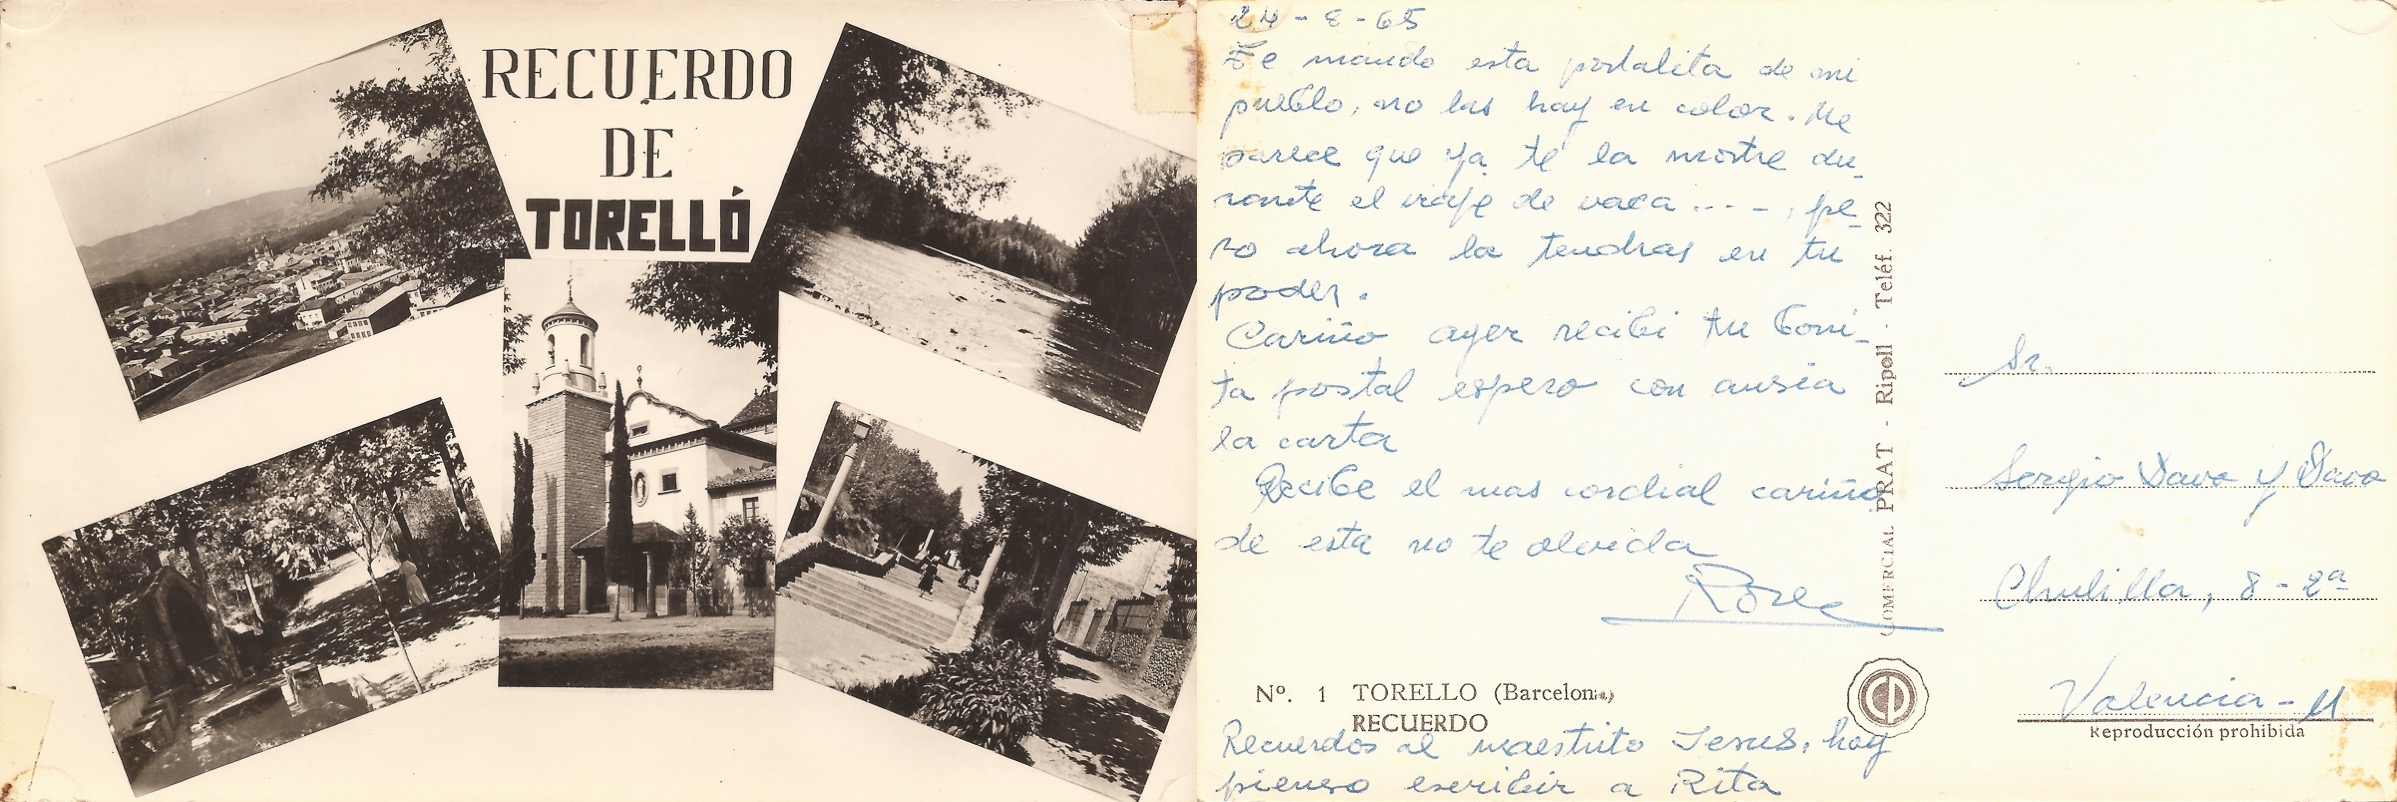 RECUERDO
DE
TORELLÓ
24-8-65
Te mando esta postalita de mi
pueblo, no las hay en color. Me
parece que ya te la mostre du-
rante el viaje de vaca ... -, pe-
ro ahora la tendras en tu
poder.
Cariño ayer recibi tu boni-
ta postal espero con ansia
la carta
Recibe el mas cordial cariño
de esta no te olvida
Rosa
Nº. 1 TORELLO (Barcelona)
RECUERDO
Recuerdos al maestrito Jesus, hoy
pienso escribir a Rita
COMERCIAL PRAT - Ripoll - Teléf. 322
CP
Sr.
Sergio Davo y Davo
Chulilla, 8-2ª
Valencia-11
Reproducción prohibida